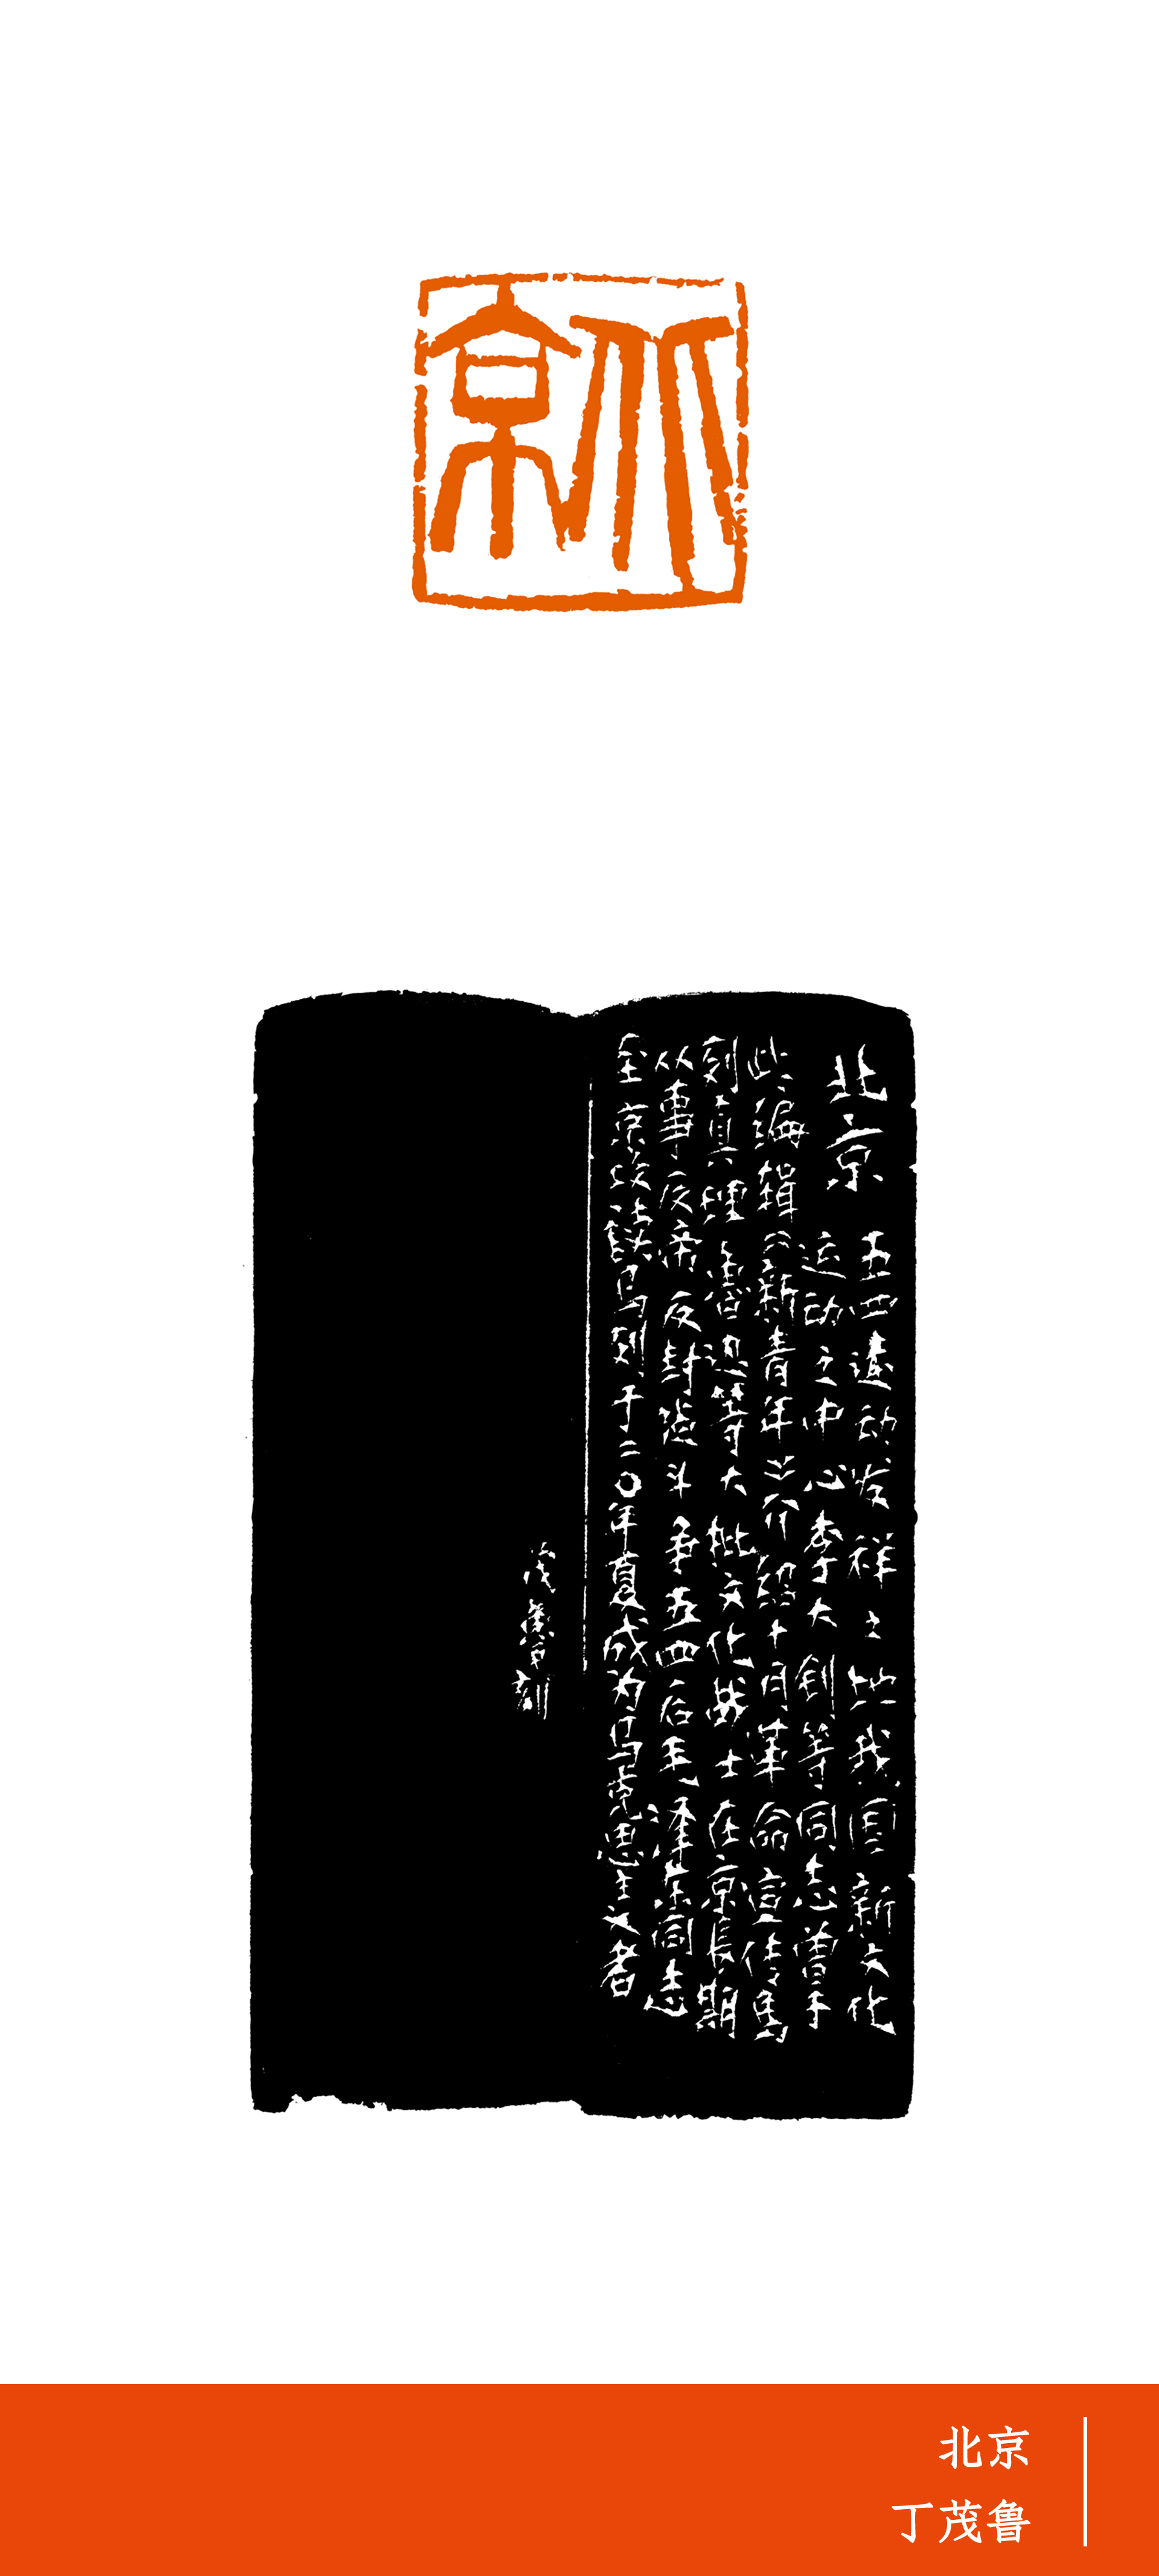 北京
北京
五四运动发祥之地我国新文化
运动之中心李大钊等同志曾于
此编辑《新青年》介绍十月革命宣传马
列真理鲁迅等大批文化战士在京長期
从事反帝反封建斗争五四后毛泽东同志
至京攻读马列于二〇年夏成为马克思主义者
茂鲁刻
北京
丁茂鲁